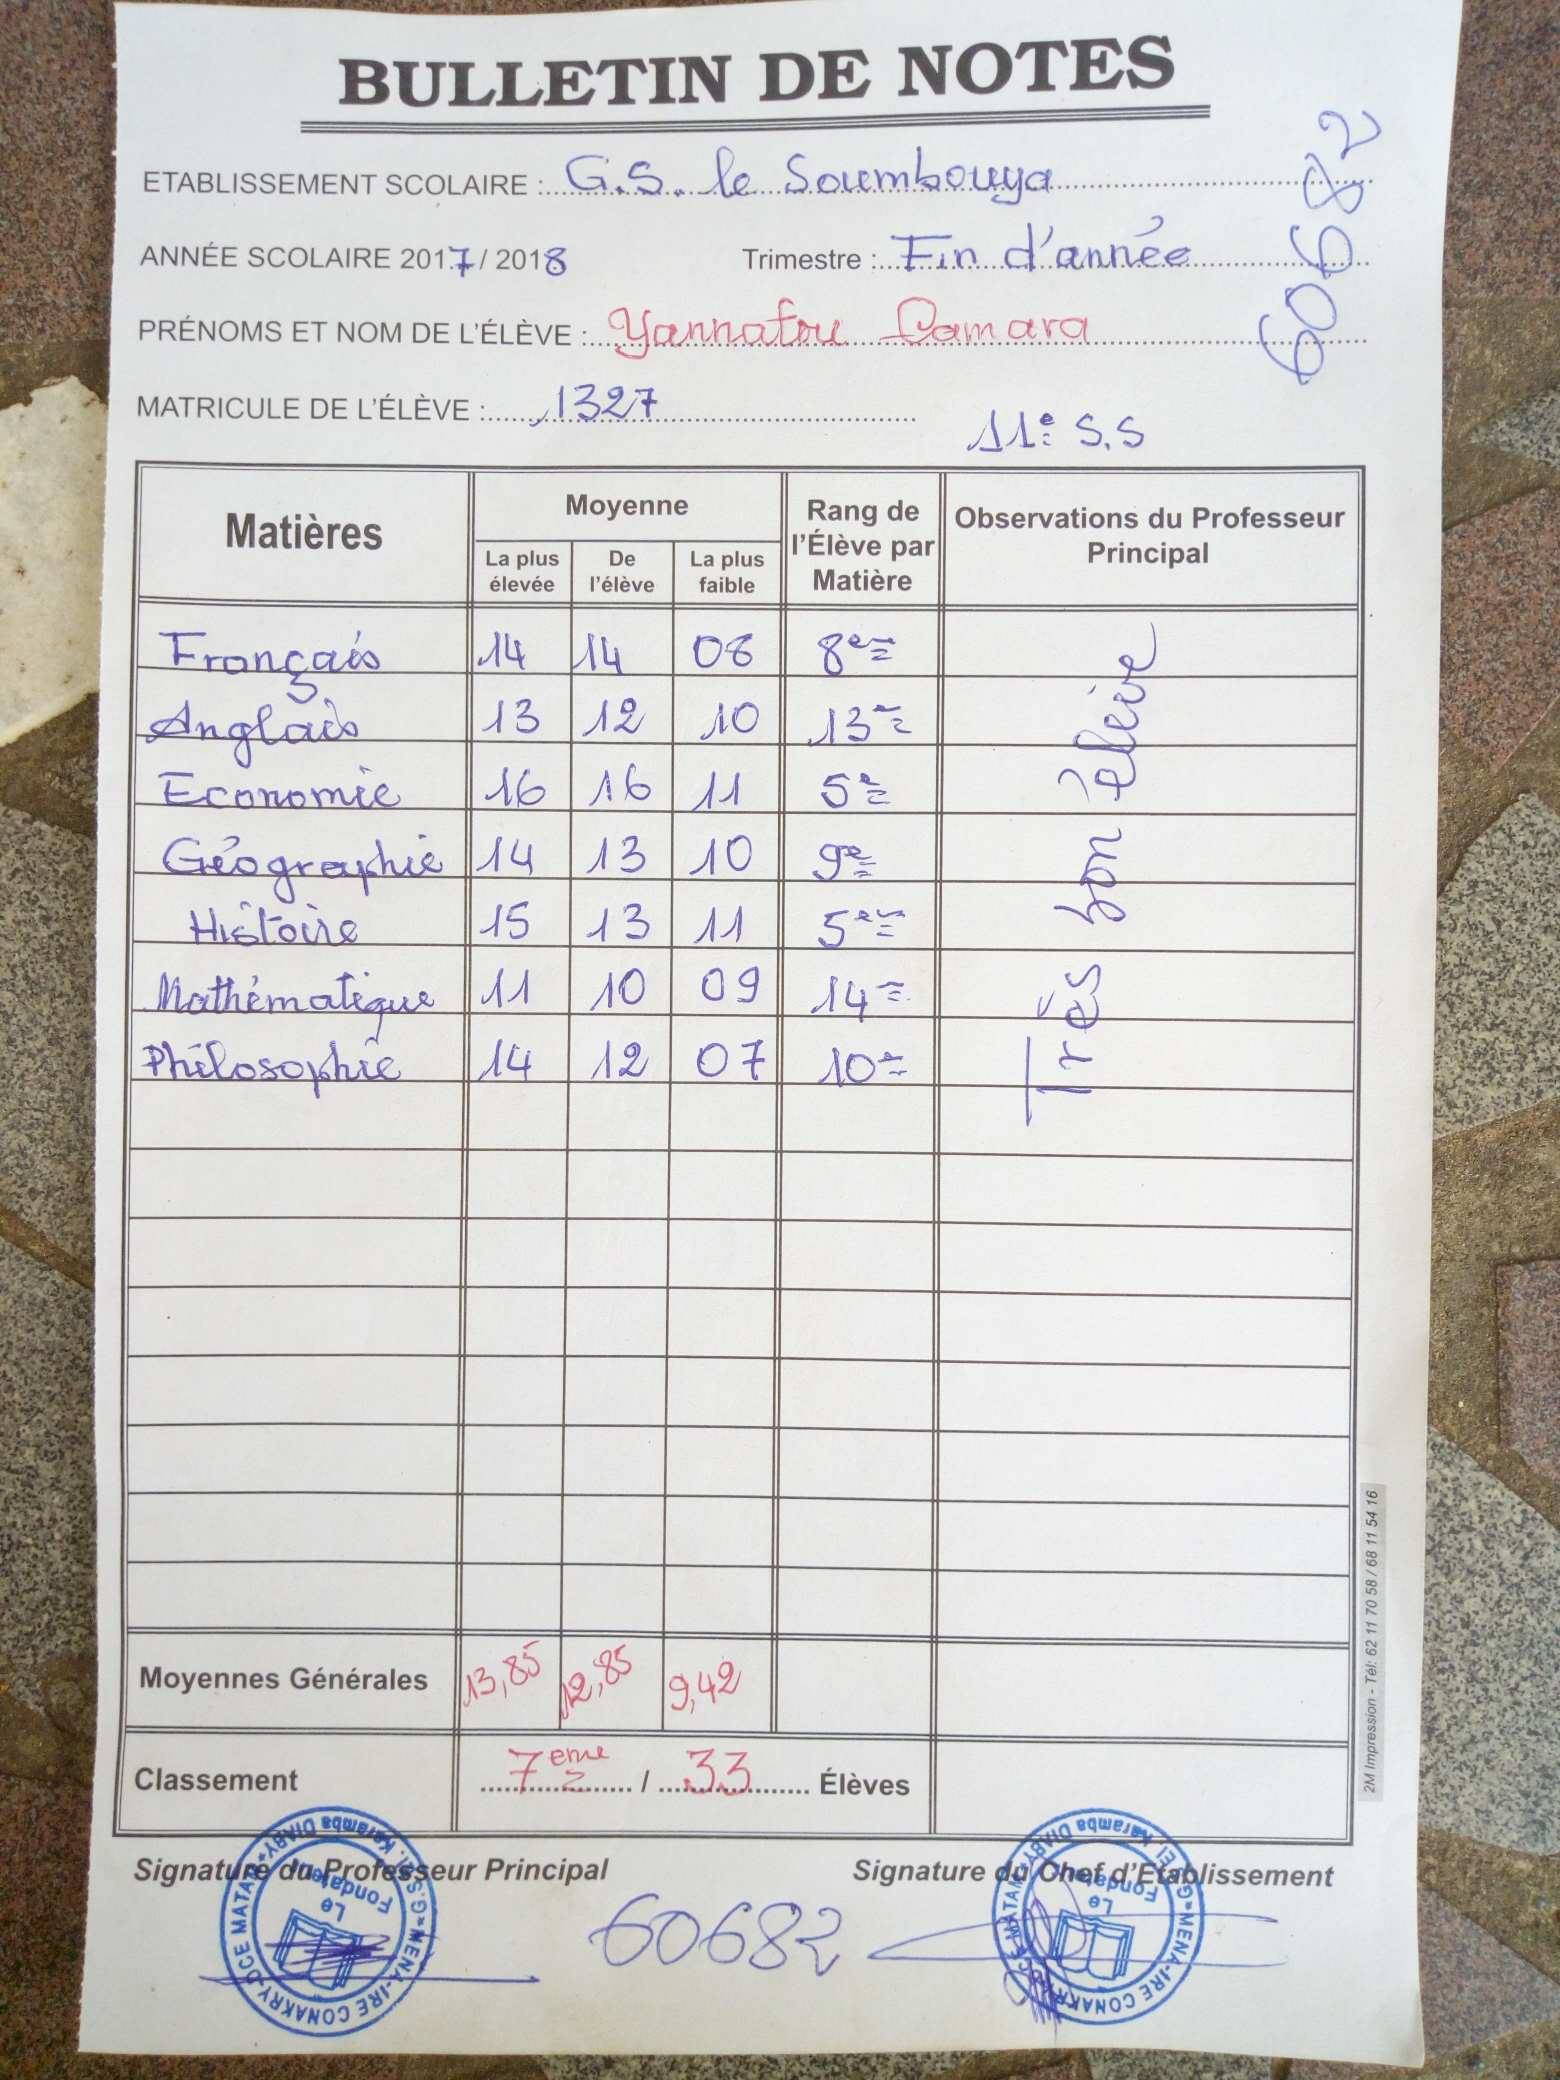 BULLETIN DE NOTES
ETABLISSEMENT SCOLAIRE : G.S. le Soumbouya
ANNÉE SCOLAIRE 2017 / 2018 Trimestre : Fin d'année
PRÉNOMS ET NOM DE L'ÉLÈVE : Yannatou Camara
MATRICULE DE L'ÉLÈVE : 1327
60682
11e S.S
Matières Moyenne Rang de l'Élève par Matière Observations du Professeur Principal
La plus élevée De l'élève La plus faible
Français 14 14 08 8e
Anglais 13 12 10 13e
Economie 16 16 11 5e
Géographie 14 13 10 9e
Histoire 15 13 11 5e
Mathématique 11 10 09 14e
Philosophie 14 12 07 10e
Très bon élève
Moyennes Générales 13,85 12,85 9,42
Classement 7eme / 33 Élèves
2M Impression - Tél: 62 11 70 58 / 68 11 54 16
Signature du Professeur Principal Signature du Chef d'Etablissement
Le Fondateur
60682
Le Fondateur